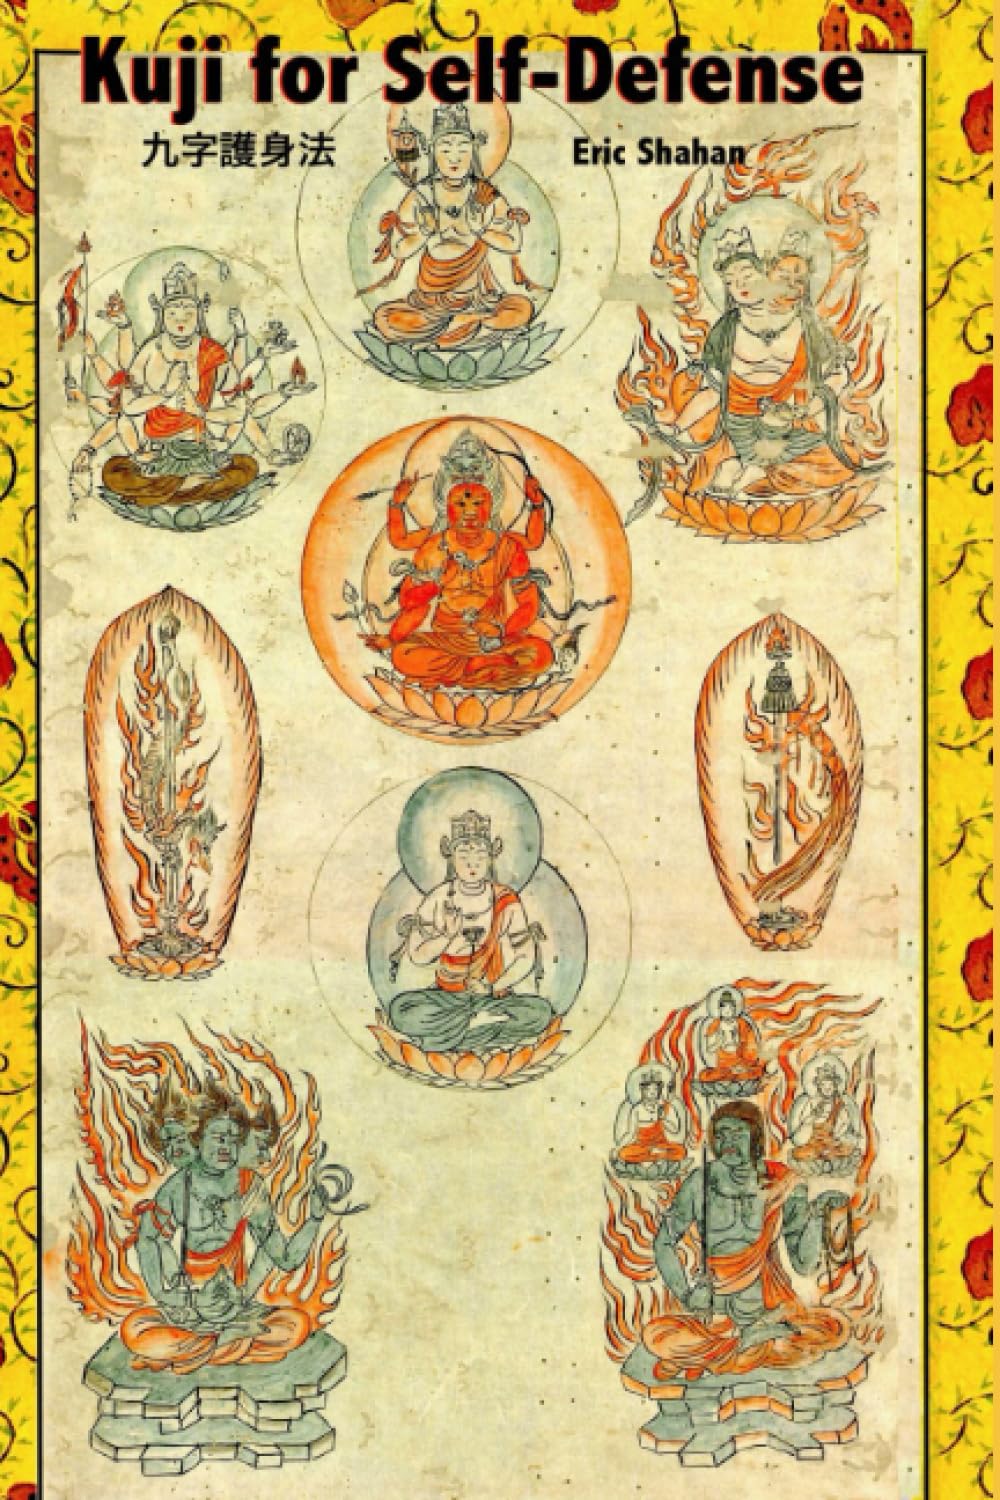 Kuji for Self-Defense
九字護身法
Eric Shahan